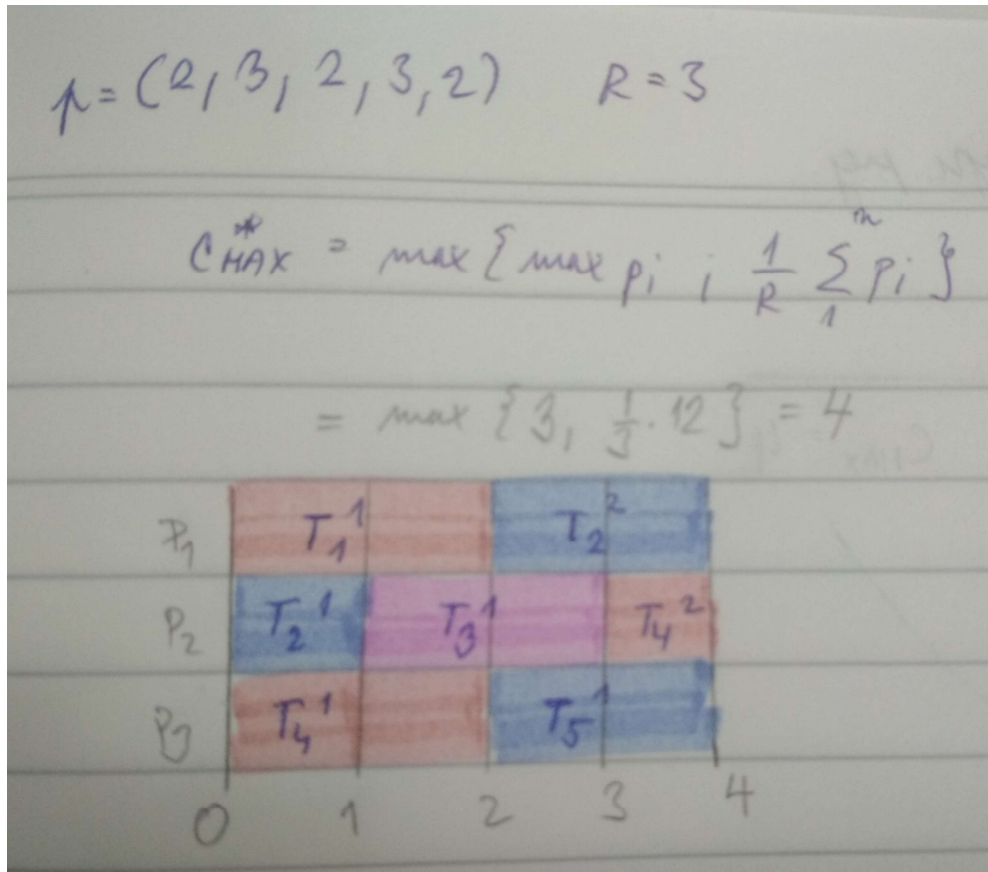 p = (2, 3, 2, 3, 2) R = 3
C*MAX = max { max pi ; 1/R ∑ⁿ₁ pi }
= max { 3, 1/3 · 12 } = 4
P₁ T₁¹ T₂²
P₂ T₂¹ T₃¹ T₄²
P₃ T₄¹ T₅¹
0 1 2 3 4